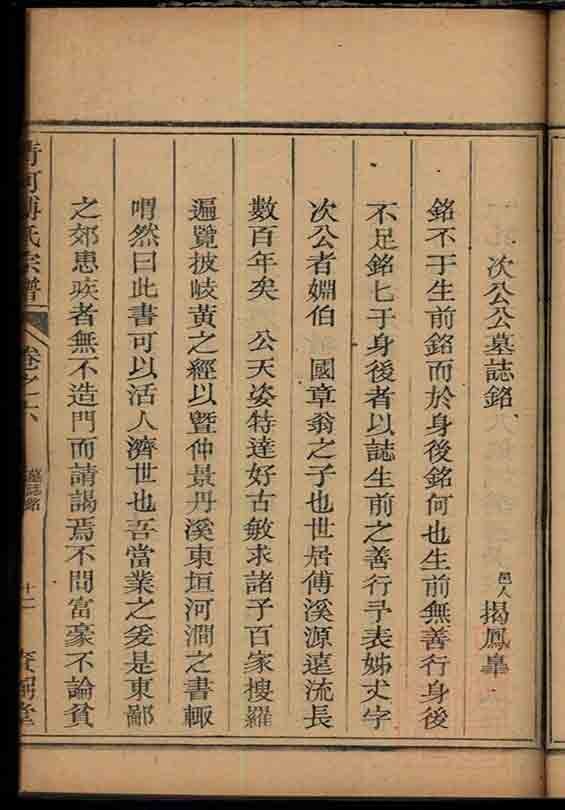 次公公墓誌銘 邑人 揭鳳臯
銘不于生前銘而於身後銘何也生前無善行身後
不足銘匕于身後者以誌生前之善行予表姊丈字
次公者嫺伯 國章翁之子也世居傅溪源遠流長
數百年矣 公天姿特達好古敏求諸子百家搜羅
遍覽披岐黃之經以暨仲景丹溪東垣河澗之書輙
喟然曰此書可以活人濟世也吾當業之爰是東鄙
之郊患疾者無不造門而請謁焉不問富豪不論貧
清河傅氏宗譜 卷之六 墓誌銘 十二